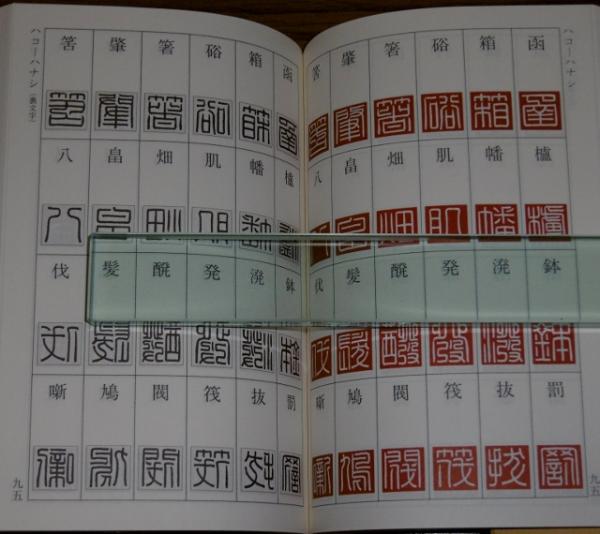 ハコーハナシ
函 箱 硲 箸 肇 筈
櫨 幡 肌 畑 畠 八
鉢 溌 発 醗 髪 伐
罰 抜 筏 閥 鳩 噺
九五
函 箱 硲 箸 肇 筈
櫨 幡 肌 畑 畠 八
鉢 溌 発 醗 髪 伐
罰 抜 筏 閥 鳩 噺
ハコーハナシ(裏文字)
九五